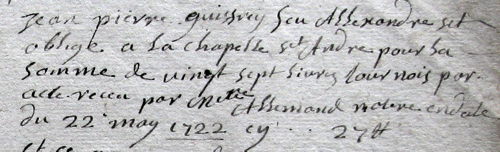 jean pierre guissrey feu Allexandre set
oblige a la chapelle St Andre pour la
somme de vingt sept livres tournois par
acte receu par Me Allemand notere en date
du 22 may 1722 cy .. 27#